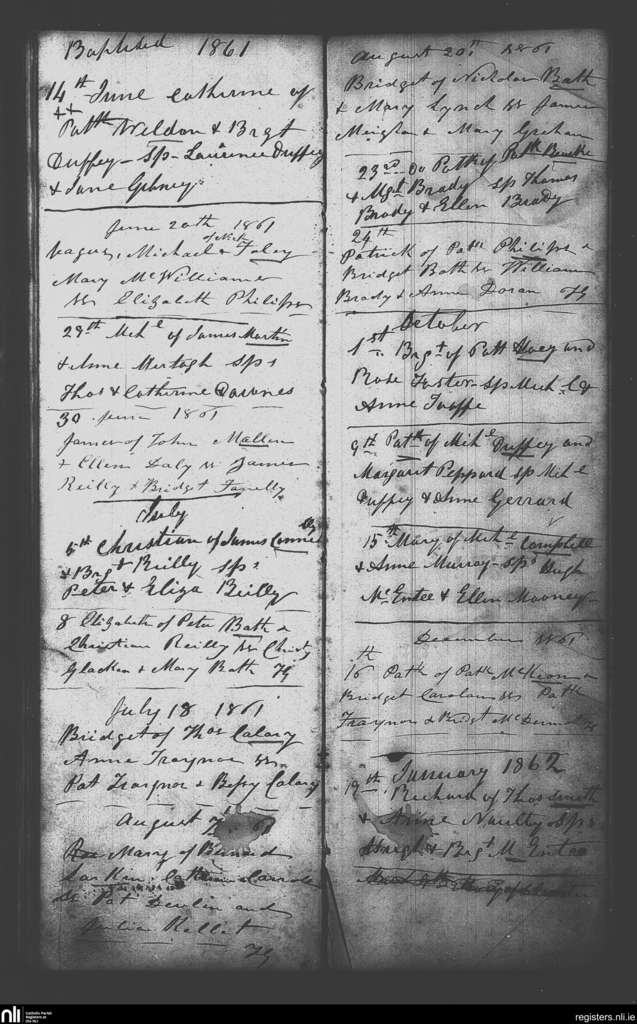 Baptised 1861
14th June Catherine of
Patk Weldon & Brgt
Duffey - Sp - Laurence Duffey
& Jane Gibney
June 20th 1861
of Nich
Michael & Foley
Mary McWilliams
Elizabeth Philips
29th Mchl of James Martin
& Anne Murtagh Sps
Thos & Catherine Downes
30 June 1861
James of John Mallen
& Ellen Daly Ss James
Reilly & Bridget Farrelly
July
5th Christian of James
& Brgt Reilly Sps
Peter & Eliza Reilly
8 Elizabeth of Peter Bath &
Christian Reilly Ss Christy
Glacken & Mary Bath
July 18 1861
Bridget of Thos Calary
Anne Traynor Ss
Pat Traynor & Bessy Calary
August 61
Mary of
Catherine
Ss Pat Devlin and
Julia Kellet
August 20th 1861
Bridget of Nicholas Bath
& Mary Lynch Ss James
& Mary Graham
23rd Do Patk of Patk Rourke
& Mgt Brady Sp Thomas
Brady & Ellen Brady
24th
Patrick of Patk Philips &
Bridget Bath Ss William
Brady & Anne Doran
October
1st Brgt of Patt Hoey and
Rose Foster - Sp Mich l &
Anne Taaffe
9th Patk of Mchl Duffey and
Margaret Peppard Sp Mchl
Duffey & Anne Gerrard
15th Mary of Mchl Campbell
& Anne Murray - Sps Hugh
McEntee & Ellen Mooney
December 1861
th
16 Patk of Patk McKeon &
Bridget Carolan Ss Patk
Traynor & Bridgt McDermot
January 1862
19th Richard of Thos Smith
& Anne Naulty Sps
Hugh & Brgt McEntee
nli
Catholic Parish
Registers at
the NLI
registers.nli.ie